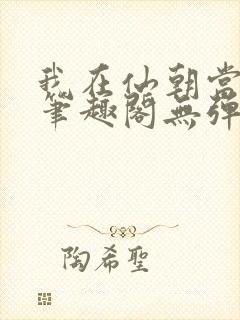 我在仙朝當
筆趣閣無彈
陶希聖